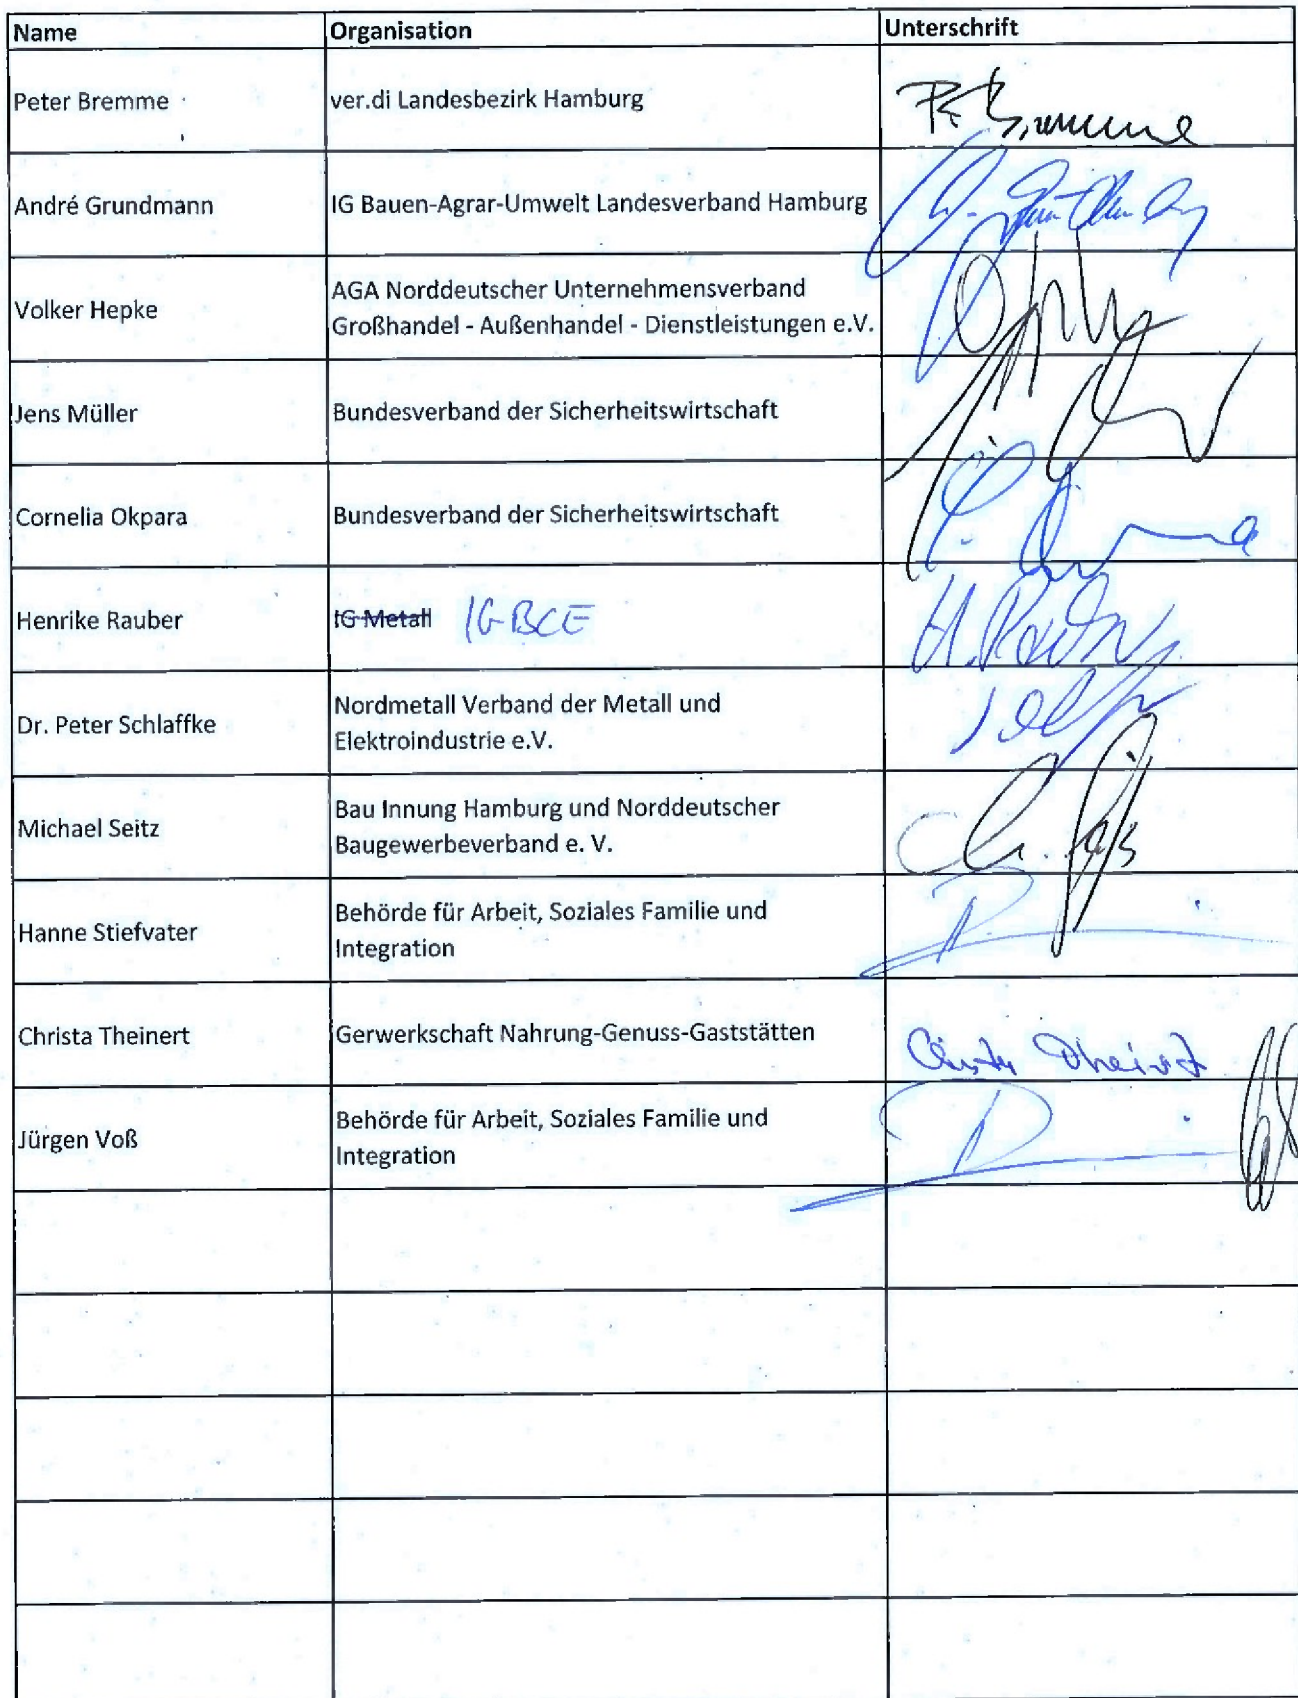 Name Organisation Unterschrift
Peter Bremme ver.di Landesbezirk Hamburg
André Grundmann IG Bauen-Agrar-Umwelt Landesverband Hamburg
Volker Hepke AGA Norddeutscher Unternehmensverband
Großhandel - Außenhandel - Dienstleistungen e.V.
Jens Müller Bundesverband der Sicherheitswirtschaft
Cornelia Okpara Bundesverband der Sicherheitswirtschaft
Henrike Rauber IG Metall IG BCE
Dr. Peter Schlaffke Nordmetall Verband der Metall und
Elektroindustrie e.V.
Michael Seitz Bau Innung Hamburg und Norddeutscher
Baugewerbeverband e. V.
Hanne Stiefvater Behörde für Arbeit, Soziales Familie und
Integration
Christa Theinert Gerwerkschaft Nahrung-Genuss-Gaststätten Christa Theinert
Jürgen Voß Behörde für Arbeit, Soziales Familie und
Integration